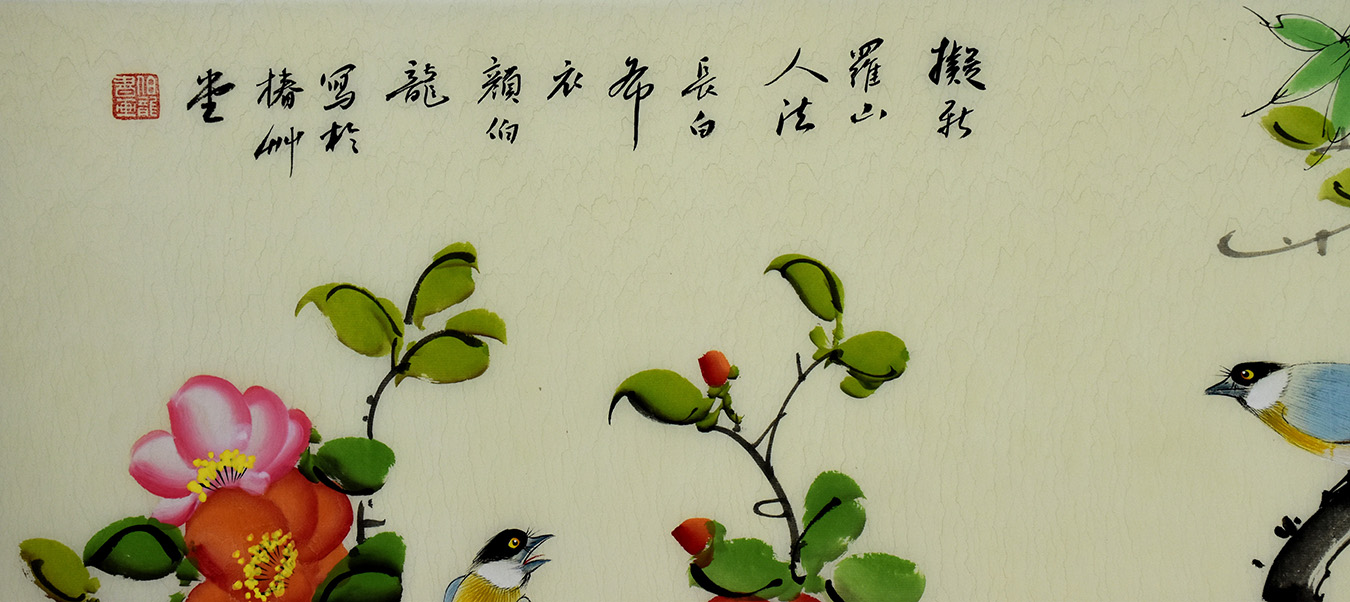 擬新
羅山
人法
長白
布
衣
顏伯
龍
寫於
椿艸
堂
伯龍書画